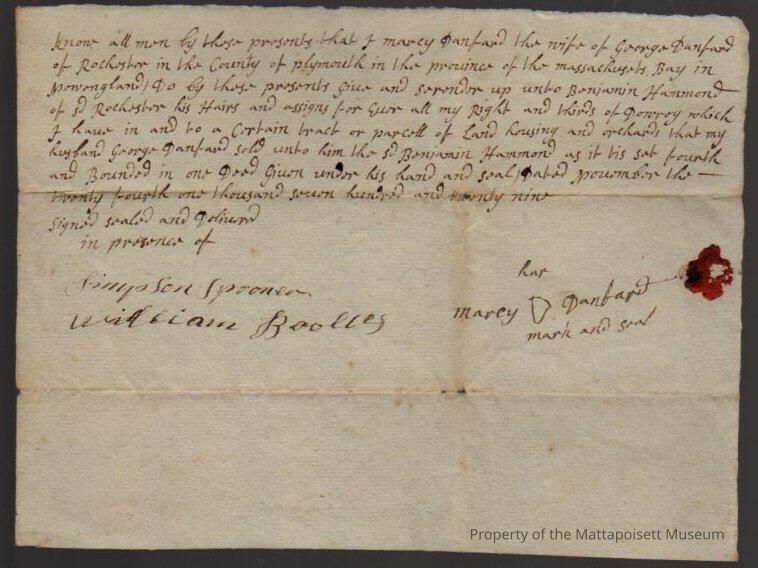 Know all men by these presents that I marcy Danfard the wife of George Danfard
of Rochester in the County of plymouth in the province of the massachusets Bay in
Newengland / Do by these presents Give and Serender up unto Benjamin Hammond
of sd Rochester his Hairs and assigns for Ever all my Right and thirds of Dowrey which
I have in and to a Certain tract or parcell of Land housing and orchards that my
husband George Danfard sold unto him the sd Benjamin Hammond as it tis set fourth
and Bounded in one Deed Given under his hand and seal Dated November the —
twenty fourth one thousand seven hundred and twenty nine
Signed sealed and Delivered
in presence of
Simpson Spooner
William Boolles
har
marcy Danfard
mark and seal
Property of the Mattapoisett Museum